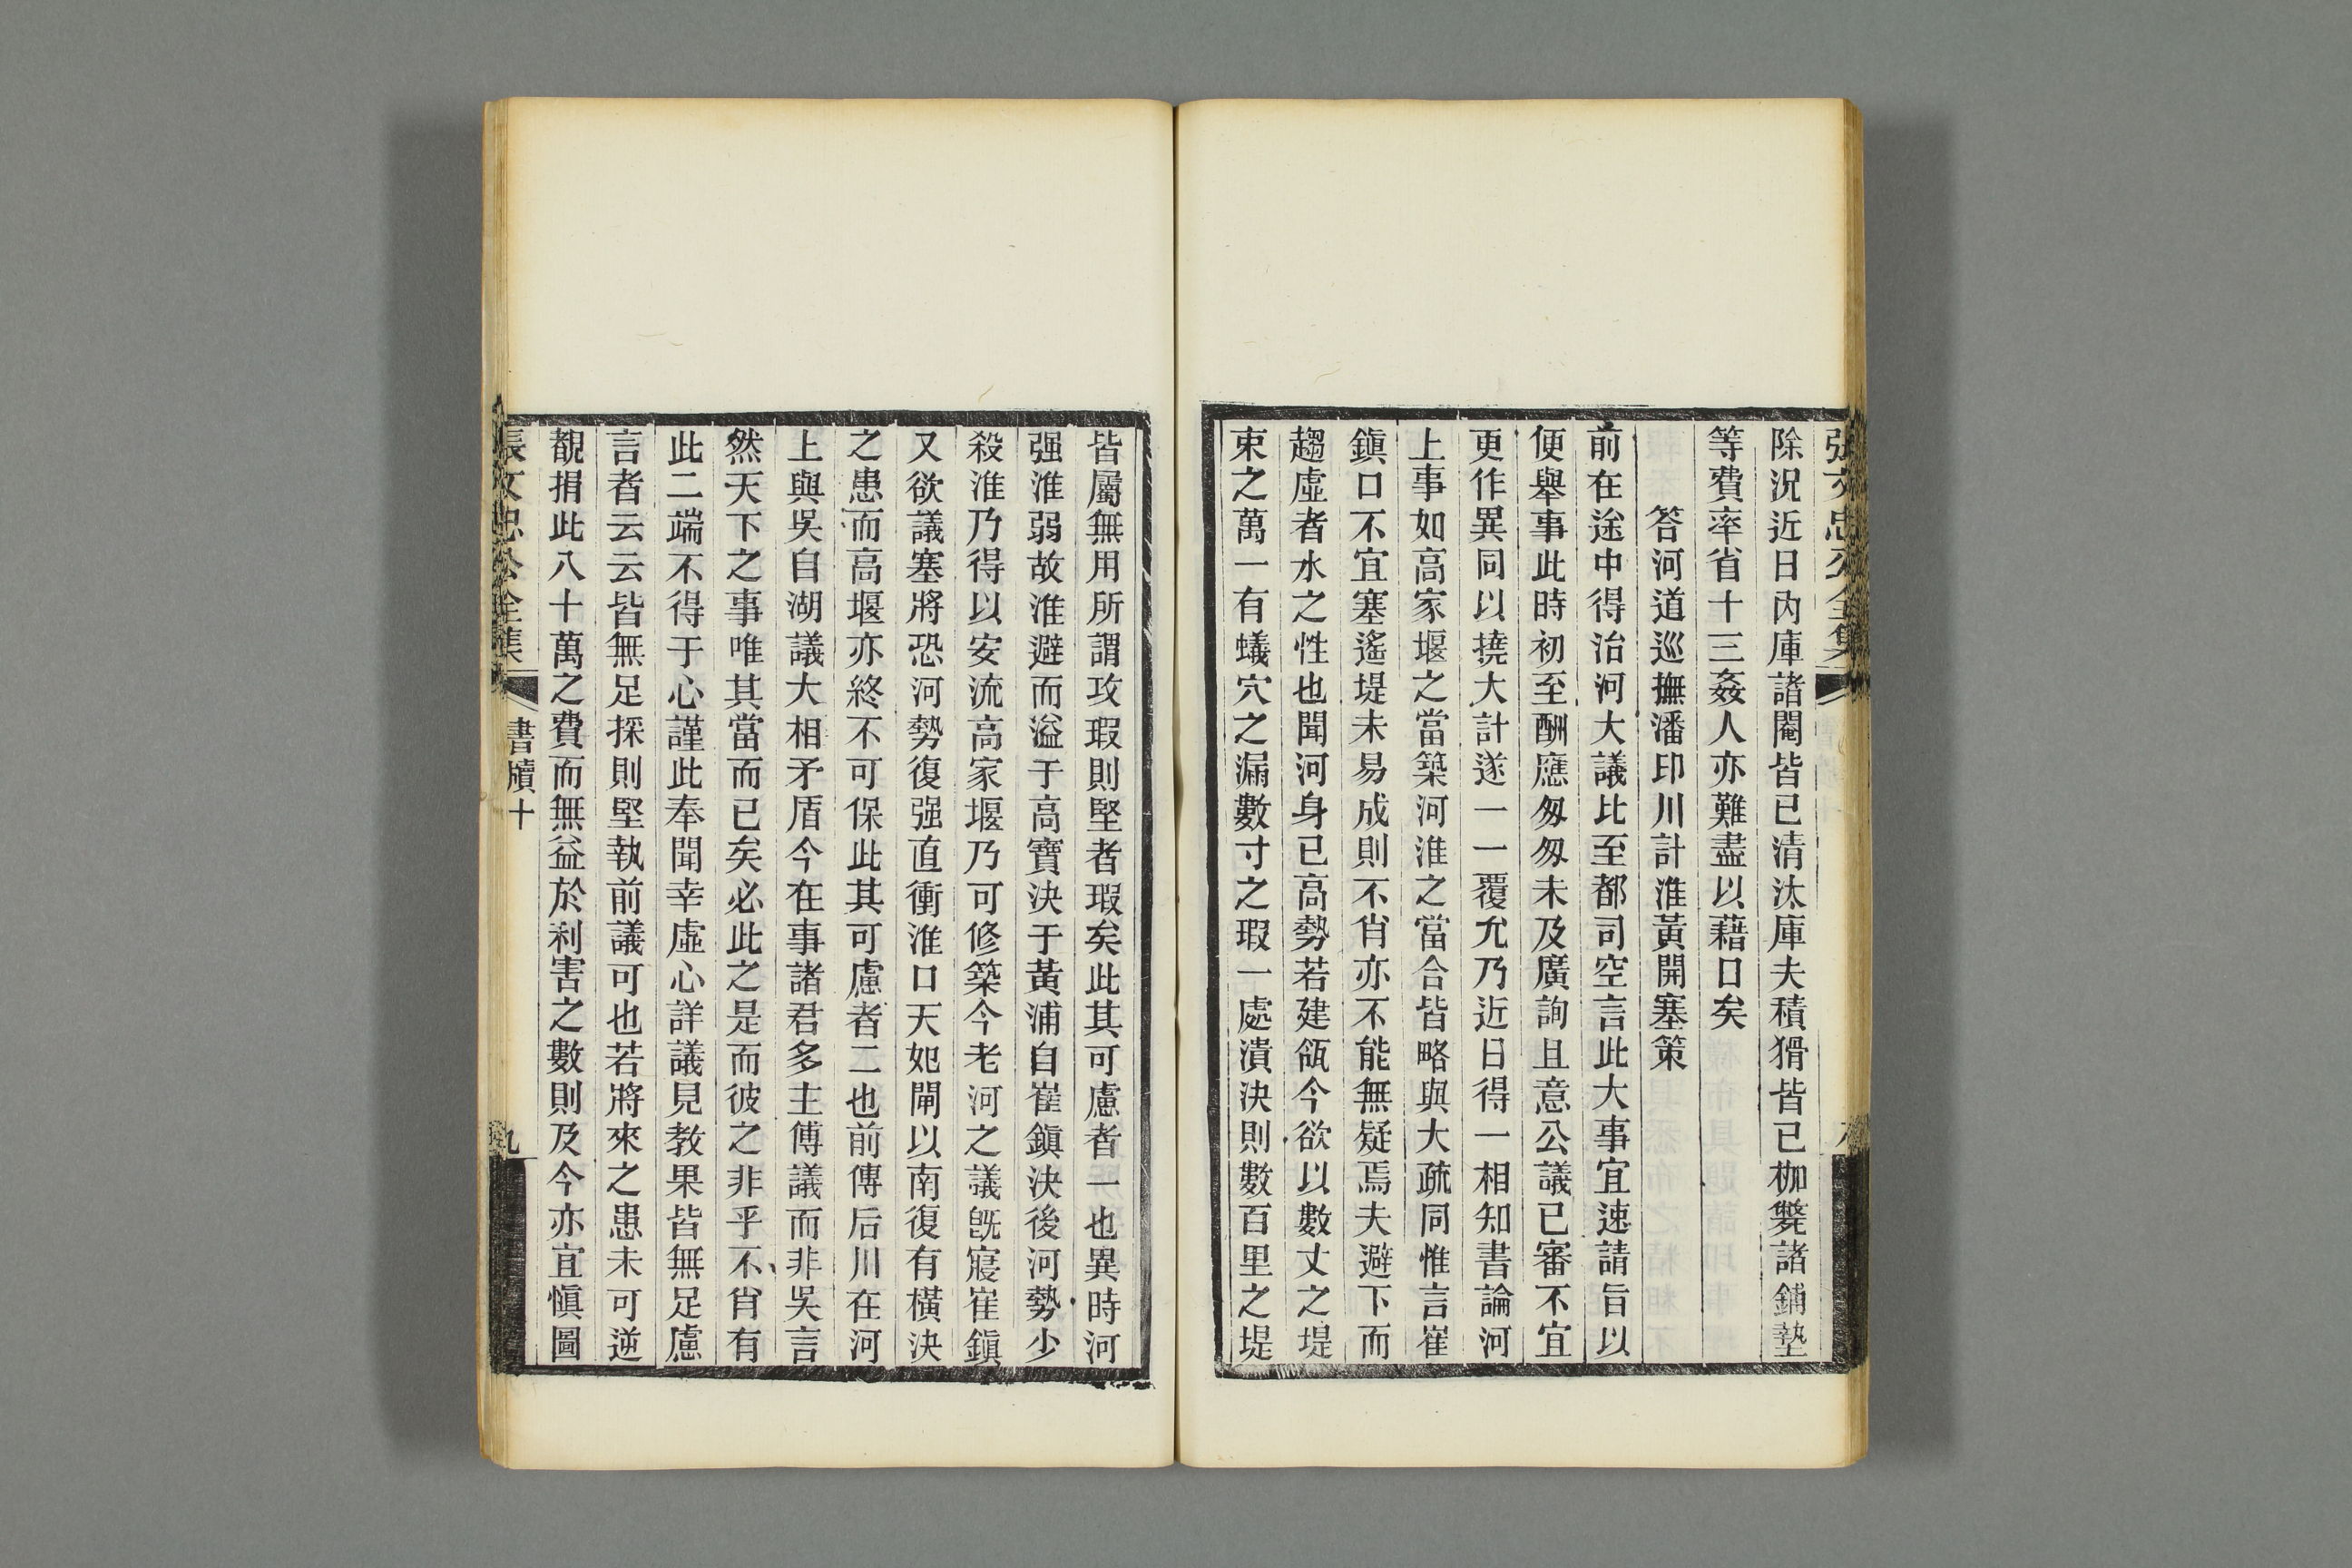 張文忠公全集
除況近日內庫諸閹皆已清汰庫夫積猾皆已枷斃諸鋪墊
等費率省十三姦人亦難盡以藉口矣
答河道巡撫潘印川計淮黃開塞策
前在途中得治河大議比至都司空言此大事宜速請旨以
便舉事此時初至酬應匆匆未及廣詢且意公議已審不宜
更作異同以撓大計遂一一覆允乃近日得一相知書論河
上事如高家堰之當築河淮之當合皆略與大疏同惟言崔
鎮口不宜塞遙堤未易成則不肖亦不能無疑焉夫避下而
趨虛者水之性也聞河身已高勢若建瓴今欲以數丈之堤
束之萬一有蟻穴之漏數寸之瑕一處潰決則數百里之堤
皆屬無用所謂攻瑕則堅者瑕矣此其可慮者一也異時河
强淮弱故淮避而溢于高寶決于黃浦自崔鎮決後河勢少
殺淮乃得以安流高家堰乃可修築今老河之議旣寢崔鎮
又欲議塞將恐河勢復强直衝淮口天妃閘以南復有橫決
之患而高堰亦終不可保此其可慮者二也前傅后川在河
上與吳自湖議大相矛盾今在事諸君多主傅議而非吳言
然天下之事唯其當而已矣必此之是而彼之非乎不肖有
此二端不得于心謹此奉聞幸虛心詳議見教果皆無足慮
言者云云皆無足採則堅執前議可也若將來之患未可逆
覩捐此八十萬之費而無益於利害之數則及今亦宜愼圖
張文忠公全集
書牘十
九